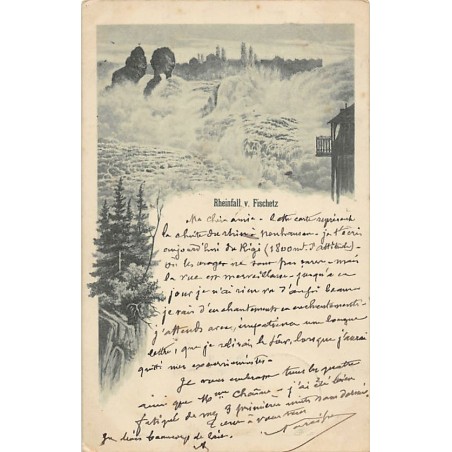 Rheinfall v. Fischetz
Ma chère amie - Cette carte représente
la chute du Rhin à Neuhausen - je t'écris
aujourd'hui du Rigi (1800 mt. d'altitude)
où les orages ne sont pas rares - mais
la vue est merveilleuse - jusqu'à ce
jour je n'ai rien vu d'aussi beau
je vais d'enchantements en enchantements.
j'attends avec impatience une longue
lettre, que je désire le soir, lorsque j'aurai
quitté mes
Je vous embrasse tous les quatre
ainsi que Mme - j'ai été bien
fatigué de mes 3 premières nuits sans dormir
à vous tous
beaucoup de